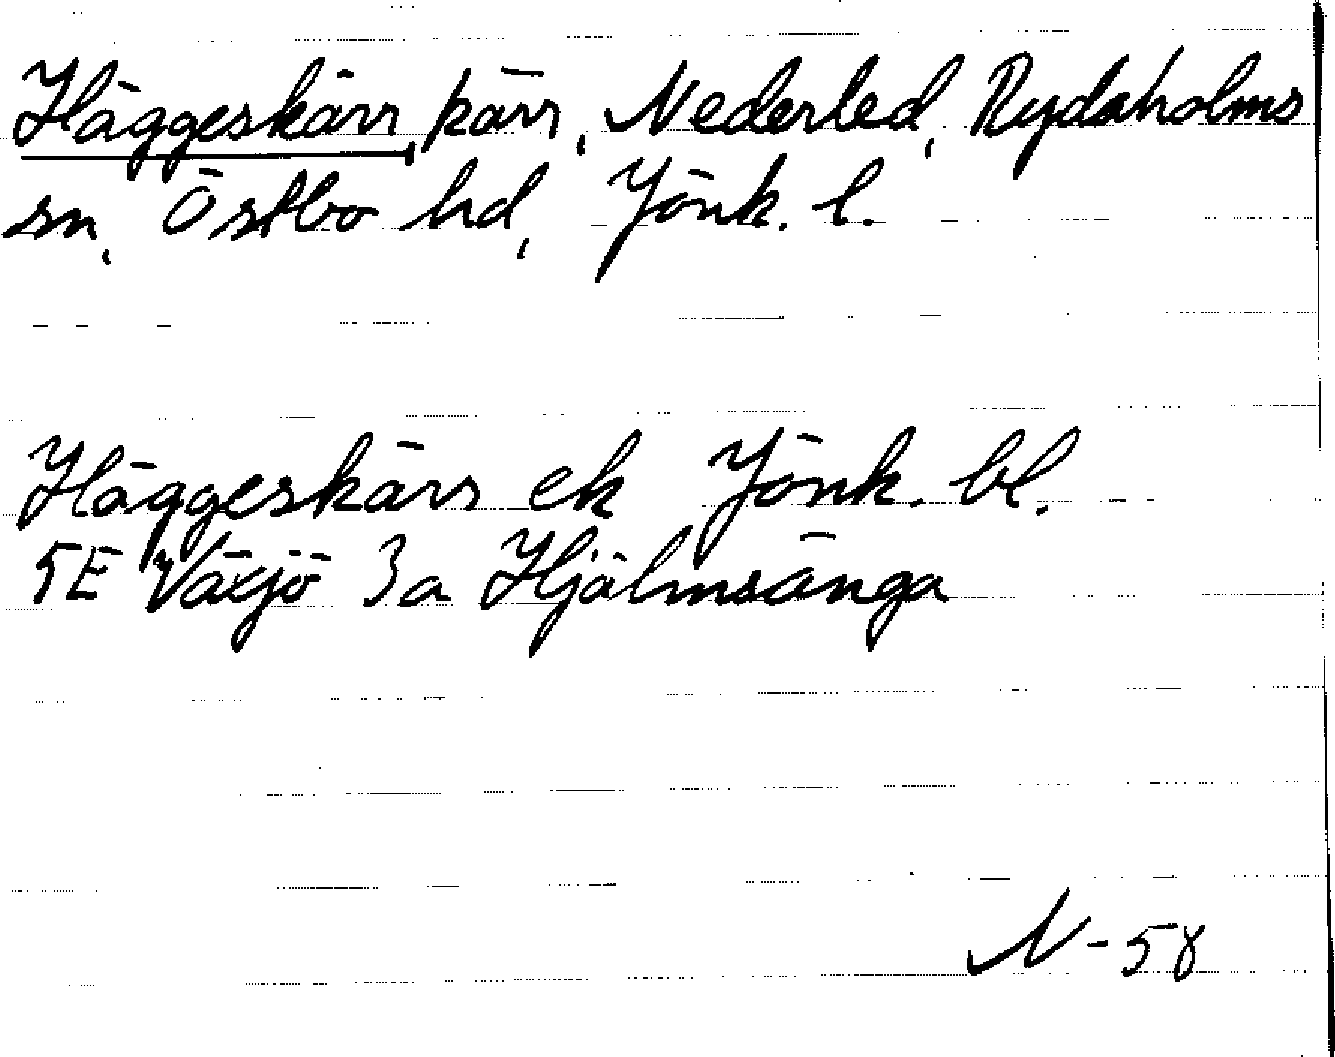 Häggeskärr, kärr, Nederled, Rydaholms
sn, Östbo hd, Jönk. l.
Häggeskärr ek Jönk. bl.
5E Växjö 3a Hjälmsänga
N-58